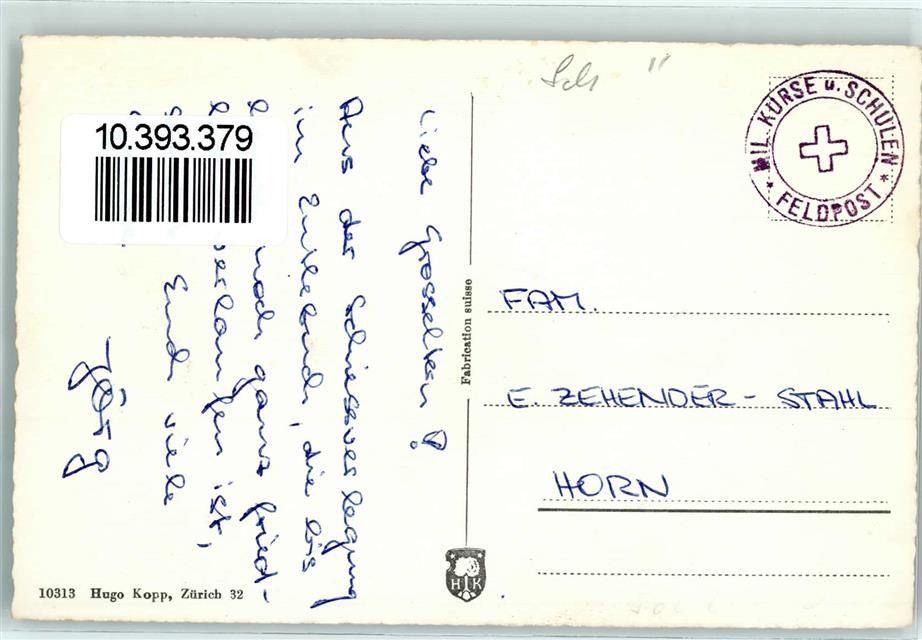 Sch "
MIL. KURSE u. SCHULEN
* FELDPOST *
10.393.379
Liebe Grosseltern!
Aus der Schiessverlegung
im Entlebuch, die bis
noch ganz fried-
verlaufen ist,
Euch viele
Jörg
Fabrication suisse
FAM.
E. ZEHENDER - STAHL
HORN
H K
10313 Hugo Kopp, Zürich 32